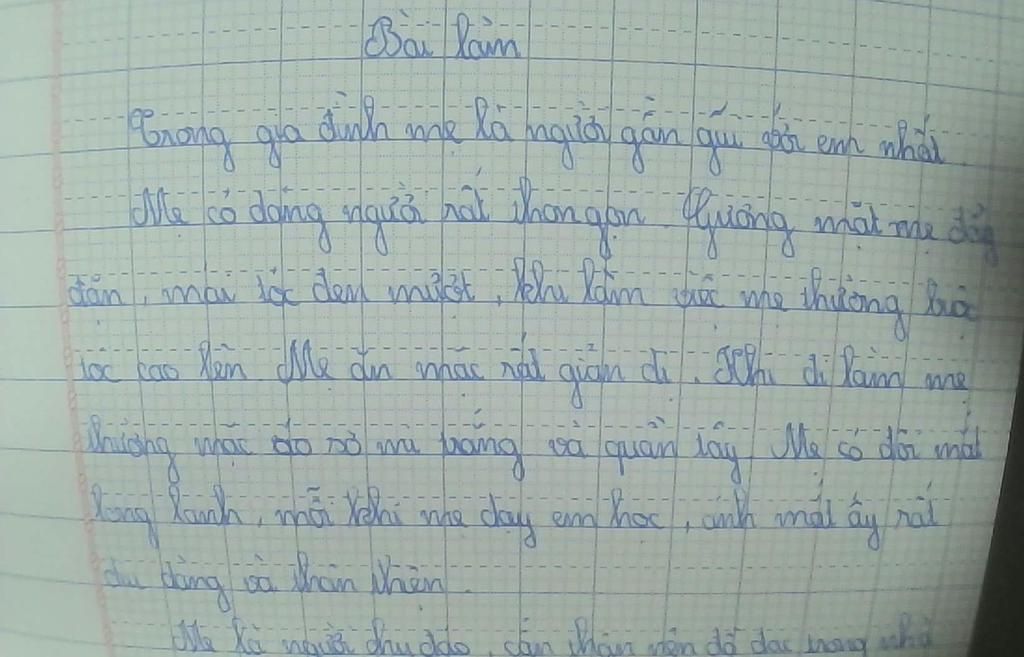 Bài làm
Trong gia đình mẹ là người gần gũi với em nhất.
Mẹ có dáng người rất thon gọn. Gương mặt mẹ đầy
đặn, mái tóc đen mượt, khi làm việc mẹ thường búi
tóc cao lên. Mẹ ăn mặc rất giản dị. Khi đi làm mẹ
thường mặc áo sơ mi trắng và quần tây. Mẹ có đôi mắt
long lanh, mỗi khi mẹ dạy em học, ánh mắt ấy rất
dịu dàng và thân thiện.
Mẹ là người chu đáo, cẩn thận nên đồ đạc trong nhà